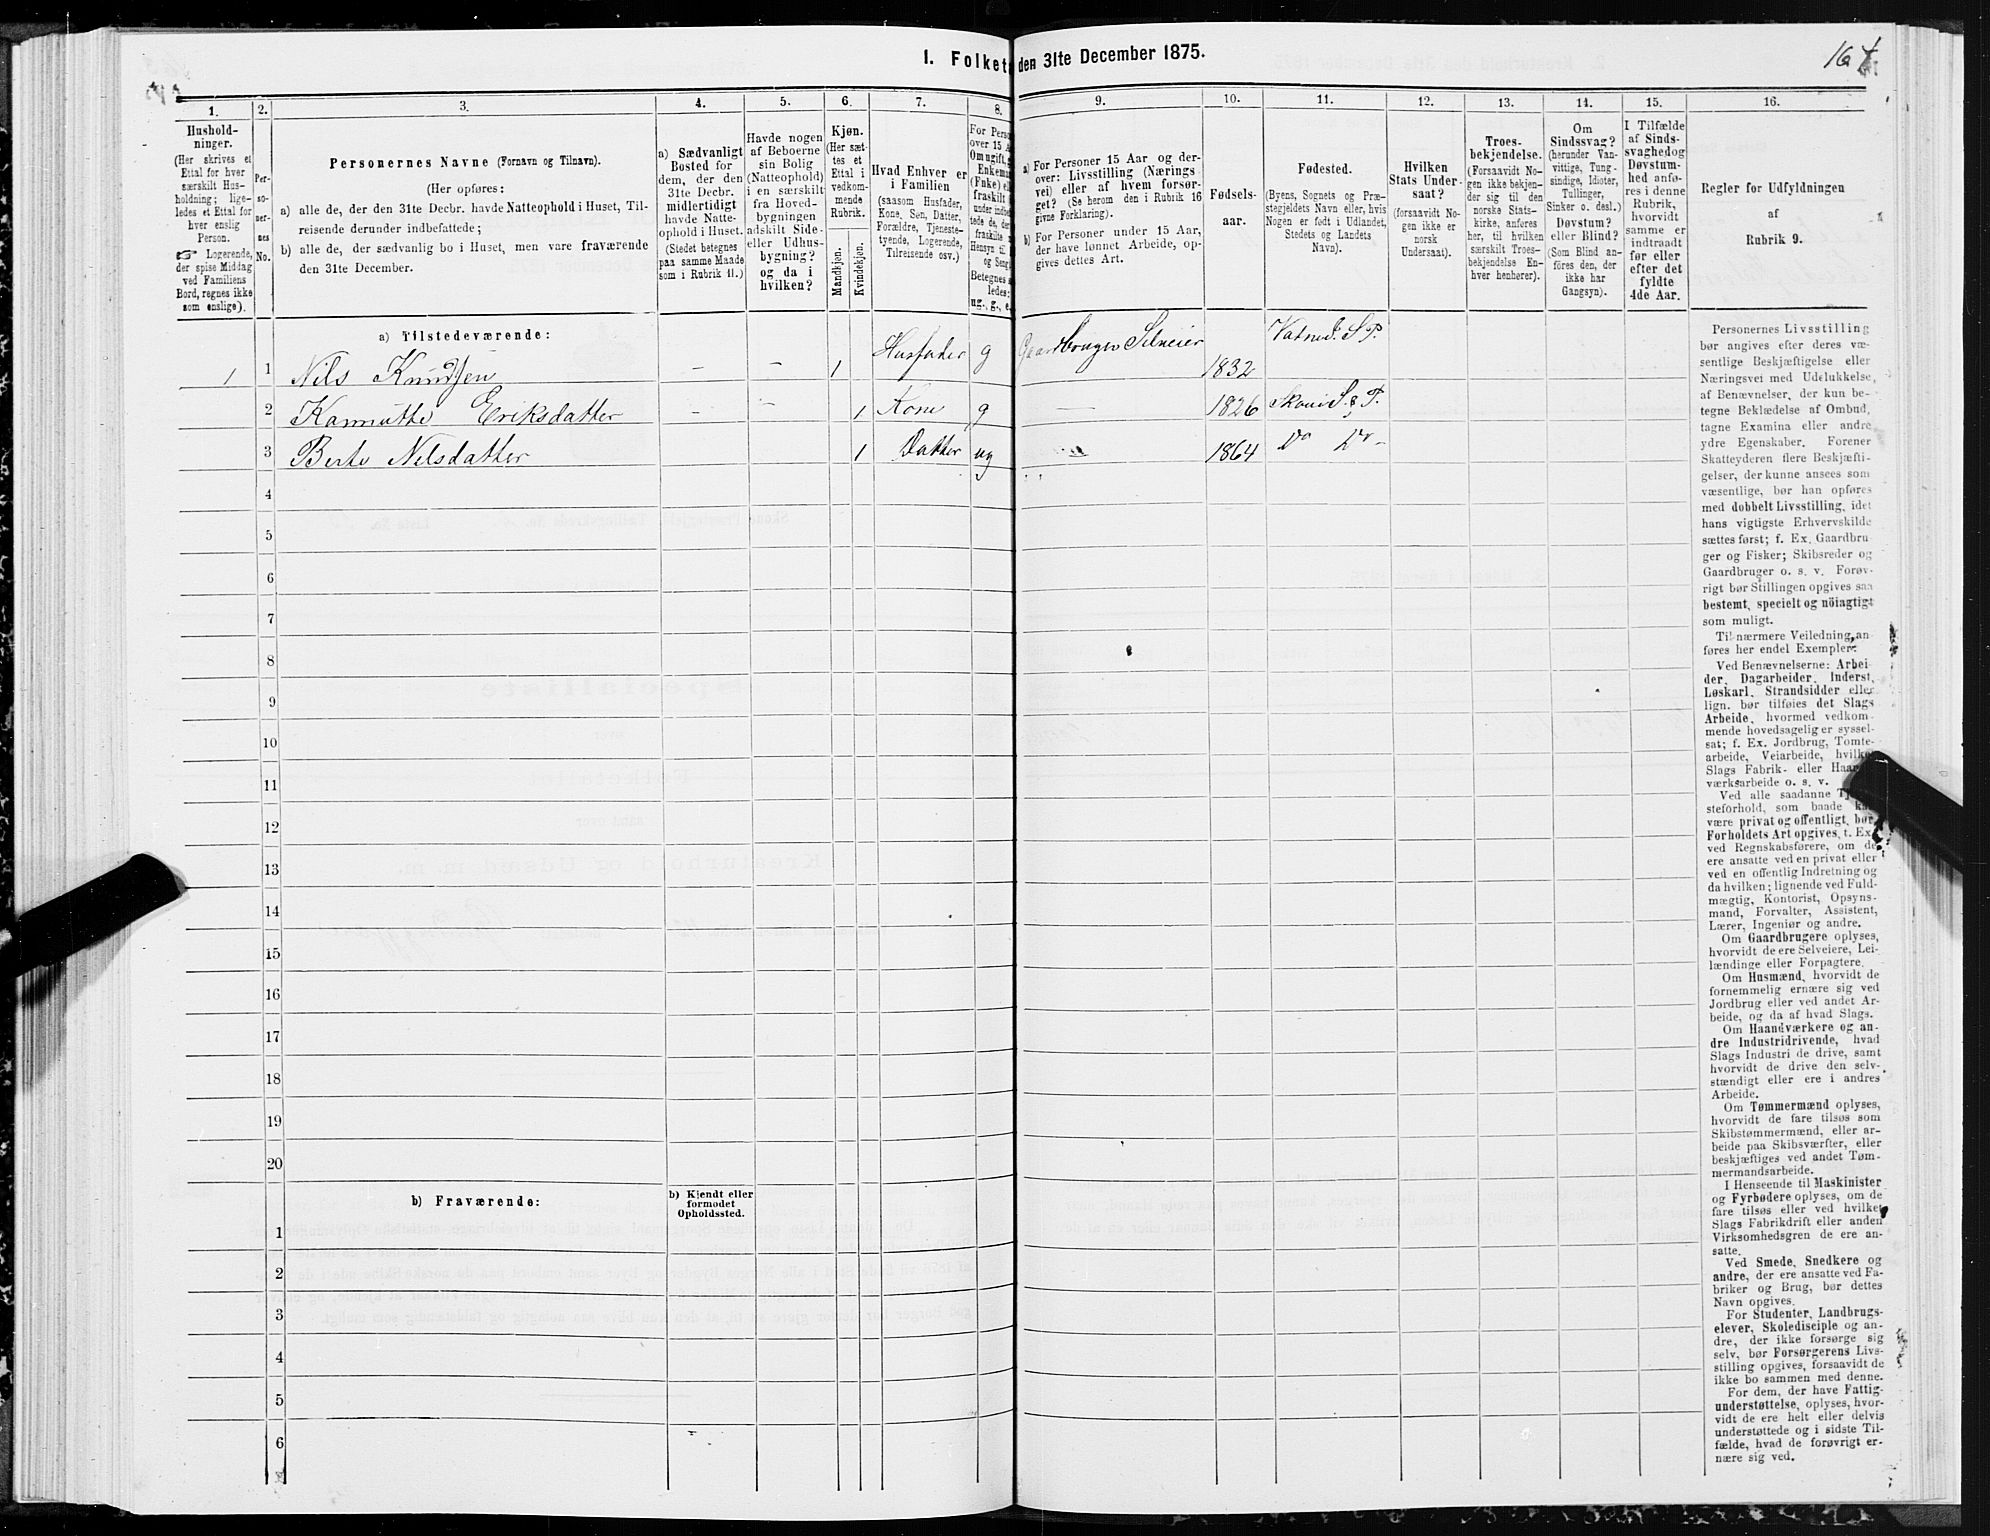 I. Folket den 31te December 1875.
164
1.
2.
3.
4.
5.
6.
7.
8.
9.
10.
11.
12.
13.
14.
15.
16.
Hushold-
ninger.
(Her skrives et
Ettal for hver
særskilt Hus-
holdning; lige-
ledes et Ettal for
hver enslig
Person.
☞ Logerende,
der spise Middag
ved Familiens
Bord, regnes ikke
som enslige).
Per-
so-
ner-
nes
No.
Personernes Navne (Fornavn og Tilnavn).
(Her opføres:
a) alle de, der den 31te Decbr. havde Natteophold i Huset, Til-
reisende derunder indbefattede;
b) alle de, der sædvanlig bo i Huset, men vare fraværende
den 31te December.
a) Sædvanligt
Bosted for
dem, der den
31te Decbr.
midlertidigt
havde Natte-
ophold i Huset.
(Stedet betegnes
paa samme Maade
som i Rubrik 11.)
Havde nogen
af Beboerne
sin Bolig
(Natteophold)
i en særskilt
fra Hoved-
bygningen
adskilt Side-
eller Udhus-
bygning?
og da i
hvilken?
Kjøn.
(Her sæt-
tes et
Ettal i
vedkom-
mende
Rubrik.
Mandkjøn.
Kvindekjøn.
Hvad Enhver er
i Familien
(saasom Husfader,
Kone, Søn, Datter,
Forældre, Tjeneste-
tyende, Logerende,
Tilreisende osv.)
For Perso
over 15 A
Om ugift,
Enkema
(Fnke) el
fraskilt
under indbe
tede de, der
fraskilte
Hensyn til
og Seng
Betegnes s
ledes:
ug., g., e.
a) For Personer 15 Aar og der-
over: Livsstilling (Nærings
vei) eller af hvem forsør-
get? (Se herom den i Rubrik 16
givne Forklaring).
b) For Personer under 15 Aar,
der have lønnet Arbeide, op-
gives dettes Art.
Fødsels-
aar.
Fødested.
(Byens, Sognets og Præ-
stegjeldets Navn eller, hvis
Nogen er født i Udlandet,
Stedets og Landets
Navn).
Hvilken
Stats Under-
saat?
(forsaavidt No-
gen ikke er
norsk
Undersaat).
Troes-
bekjendelse.
(Forsaavidt No-
gen ikke bekjen-
der sig til den
norske Stats-
kirke, anføres
her, til hvilken
særskilt Troes-
bekjendelse En-
hver henhører).
Om
Sindssvag?
(herunder Van-
vittige, Tung-
sindige, Idioter,
Tullinger,
Sinker o. desl.)
Døvstum?
eller Blind?
(Som Blind an-
føres den, der
ikke har
Gangsyn).
I Tilfælde
af Sinds-
svaghed og
Døvstum-
hed anfø-
res i denne
Rubrik,
hvorvidt
samme er
indtraadt
før eller
efter det
fyldte
4de Aar.
Regler for Udfyldningen
af
Rubrik 9.
a) Tilstedeværende:
1 1 Nils Knudsen – – 1 Husfader g Gaardbruger Selveier 1832
2 Eriksdatter – – 1 Kone g — 1826 S. & P.
3 Berte Nilsdatter 1 Datter ug 1864 Do Do
4
5
6
7
8
9
10
11
12
13
14
15
16
17
18
19
20
b) Fraværende:
b) Kjendt eller
formodet
Opholdssted.
1
2
3
4
5
6
Personernes Livsstilling
bør angives efter deres væ-
sentlige Beskjæftigelse eller
Næringsvei med Udelukkelse,
af Benævnelser, der kun be-
tegne Beklædelse af Ombud,
tagne Examina eller andre
ydre Egenskaber. Forener
Skatteyderen flere Beskjæfti-
gelser, der kunne ansees som
væsentlige, bør han opføres
med dobbelt Livsstilling, idet
hans vigtigste Erhvervskilde
sættes først; f. Ex. Gaardbru
ger og Fisker; Skibsreder og
Gaardbruger o. s. v. Forøv-
rigt bør Stillingen opgives saa
bestemt, specielt og nöiagtigt
som muligt.
Til nærmere Veiledning, an-
føres her endel Exempler:
Ved Benævnelserne: Arbei-
der, Dagarbeider, Inderst,
Løskarl, Strandsidder eller
lign. bør tilføies det Slags
Arbeide, hvormed vedkom-
mende hovedsagelig er syssel-
sat; f. Ex. Jordbrug, Tomte-
arbeide, Veiarbeide, hvilket
Slags Fabrik- eller Haand-
værksarbeide o. s. v.
Ved alle saadanne
steforhold, som baade
være privat og offentligt, bør
Forholdets Art opgives, t. Ex.
ved Regnskabsførere, om de
ere ansatte ved en privat eller
ved en offentlig Indretning og
da hvilken; lignende ved Fuld-
mægtig, Kontorist, Opsyns-
mand, Forvalter, Assistent,
Lærer, Ingeniør og andre.
Om Gaardbrugere oplyses,
hvorvidt de ere Selveiere, Lei-
lændinge eller Forpagtere.
Om Husmænd, hvorvidt de
fornemmelig ernære sig ved
Jordbrug eller ved andet Ar-
beide, og da af hvad Slags.
Om Haandværkere og an-
dre Industridrivende, hvad
Slags Industri de drive, samt
hvorvidt de drive den selv-
stændigt eller ere i andres
Arbeide.
Om Tømmermænd oplyses,
hvorvidt de fare tilsøs som
Skibstømmermænd, eller ar-
beide paa Skibsværfter, eller
beskjæftiges ved andet Tøm-
mermandsarbeide.
I Henseende til Maskinister
og Fyrbødere oplyses, om de
fare tilsøs eller ved hvilket
Slags Fabrikdrift eller anden
Virksomhedsgren de ere an-
satte.
Ved Smede, Snedkere og
andre, der ere ansatte ved Fa-
briker og Brug, bør dettes
Navn opgives.
For Studenter, Landbrugs-
elever, Skoledisciple og an-
dre, der ikke forsørge sig
selv, bør Forsørgerens Livs-
stilling opgives, forsaavidt de
ikke bo sammen med denne.
For dem, der have Fattig-
understøttelse, oplyses, hvor-
vidt de ere helt eller delvis
understøttede og i sidste Til-
fælde, hvad de forøvrigt er-
nære sig ved.